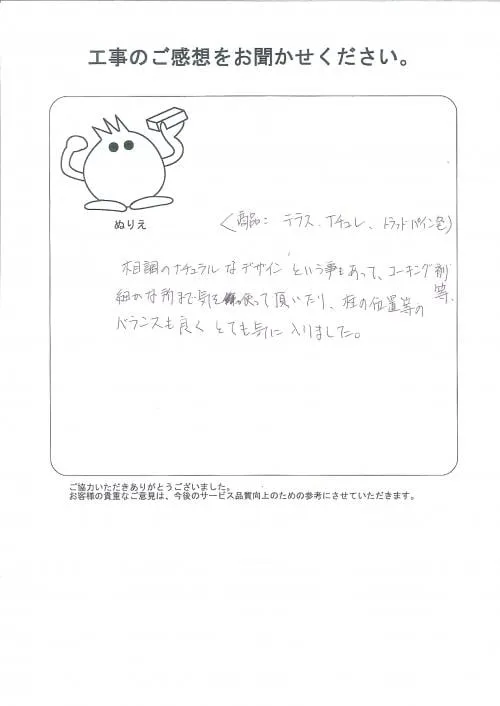 工事のご感想をお聞かせください。
ぬりえ
〈商品: テラス.ナチュレ、トラッドパイン色〉
木目調のナチュラルなデザインという事もあって、コーキング剤等、
細かな所まで気を使って頂いたり、柱の位置等の
バランスも良くとても気に入りました。
ご協力いただきありがとうございました。
お客様の貴重なご意見は、今後のサービス品質向上のための参考にさせていただきます。